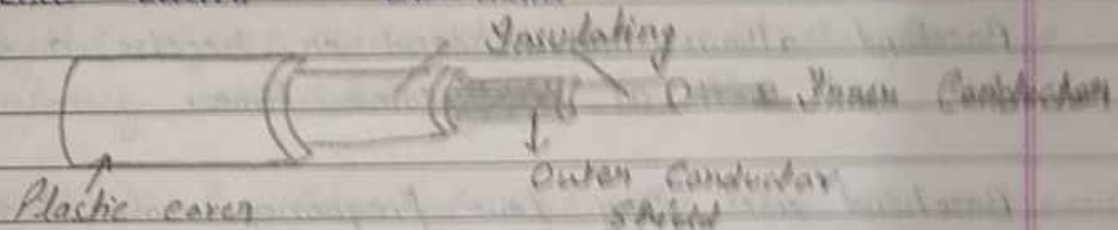 Insulating
Inner Conductor
Outer Conductor
Shield
Plastic cover